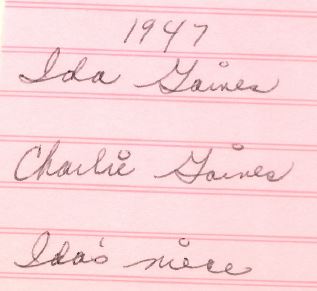 1947
Ida Gaines
Charlie Gaines
Ida's niece